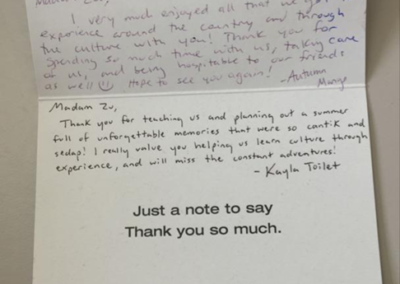 I very much enjoyed all that we got
experience around the country and through
the culture with you! Thank you for
spending so much time with us, taking care
of us, and being hospitable to our friends
as well! Hope to see you again!
-Autumn
Madam Zu,
Thank you for teaching us and planning out a summer
full of unforgettable memories that were so cantik and
sedap! I really value you helping us learn culture through
experience, and will miss the constant adventures!
- Kayla Toilet
Just a note to say
Thank you so much.